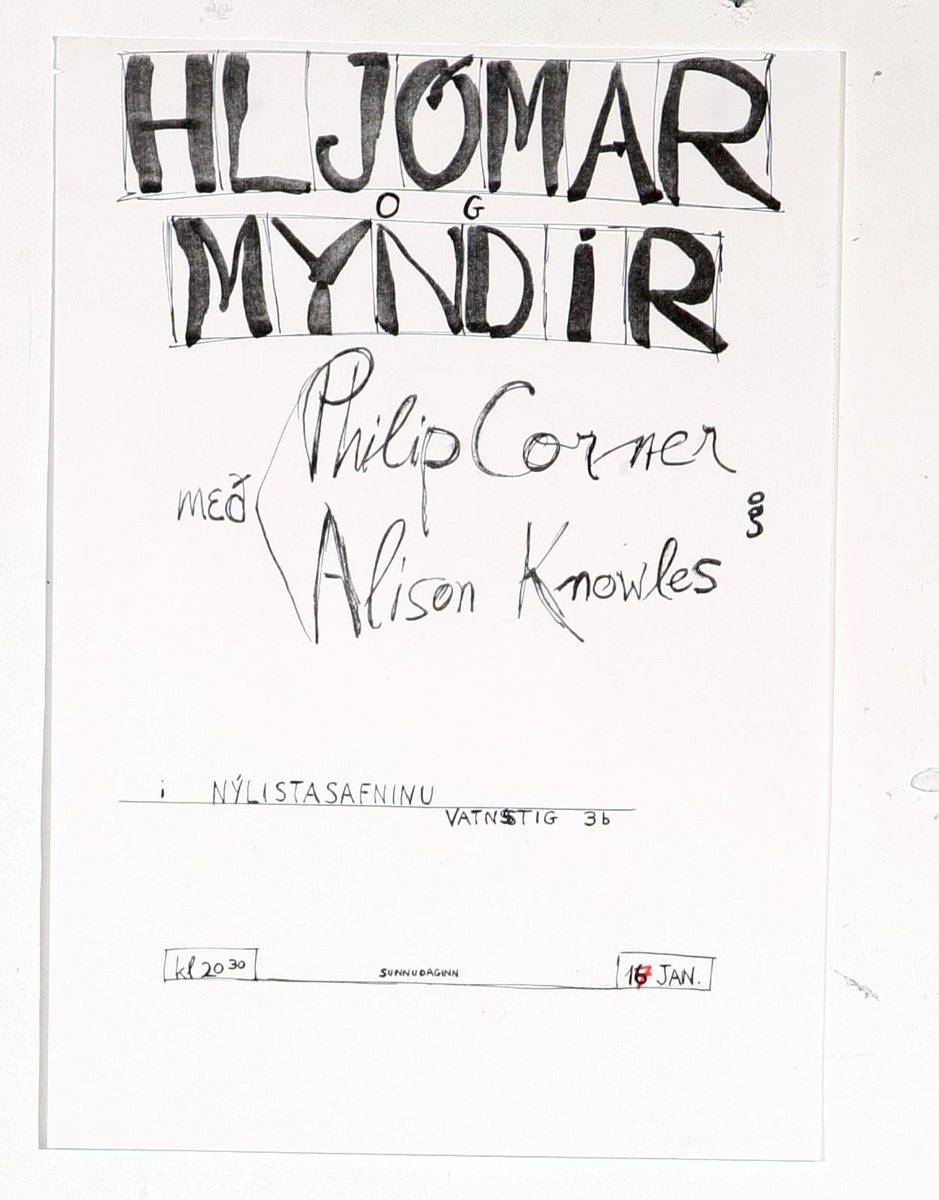 HLJÓMAR
OG
MYNDIR
með
Philip Corner
og
Alison Knowles
í NÝLISTASAFNINU
VATNSSTIG 3b
kl 20 30 SUNNUDAGINN JAN.